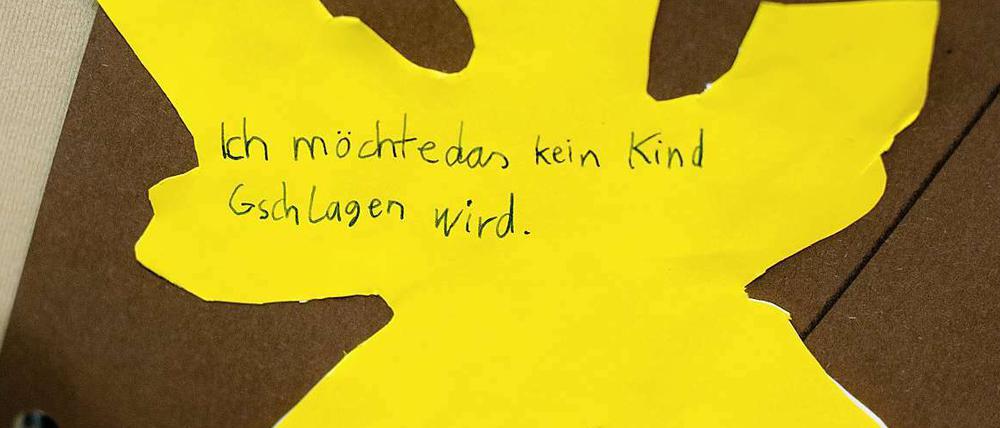 Ich möchte das kein Kind
Gschlagen wird.